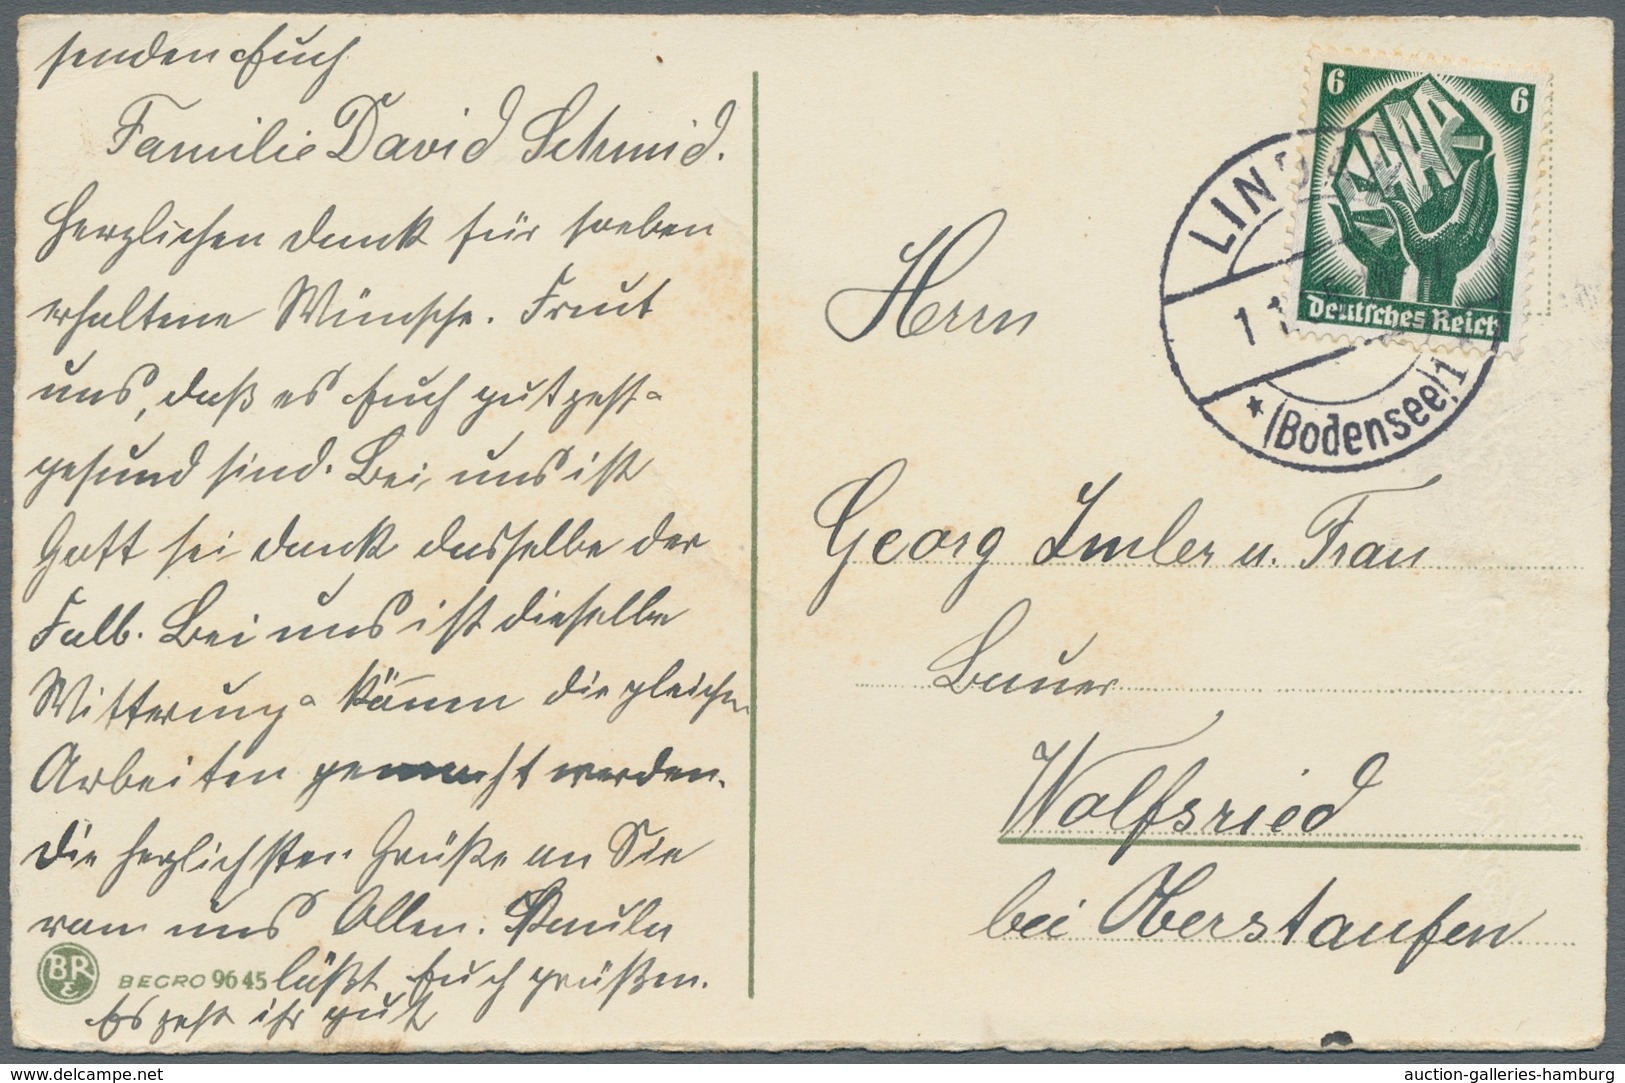 senden Euch
Familie David Schmid.
Herzlichen Dank für soeben
erhaltene Wünsche. Freut
uns, daß es Euch gut geht
gesund sind. Bei uns ist
Gott sei dank dasselbe der
Fall. Bei uns ist dieselbe
Witterung können die gleichen
Arbeiten gemacht werden.
Die herzlichsten Grüße an Sie
von uns Allen. Paula
läßt Euch grüßen.
Es geht ihr gut
BR
&
BECRO 9645
6 6
SAAR
Deutsches Reich
LINDAU
1 1
* (Bodensee) 1
Herrn
Georg Imler u. Frau
Bauer
Wolfsried
bei Oberstaufen
www.delcampe.net
auction-galleries-hamburg